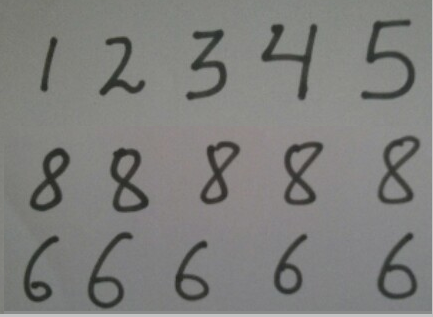 1 2 3 4 5
8 8 8 8 8
6 6 6 6 6